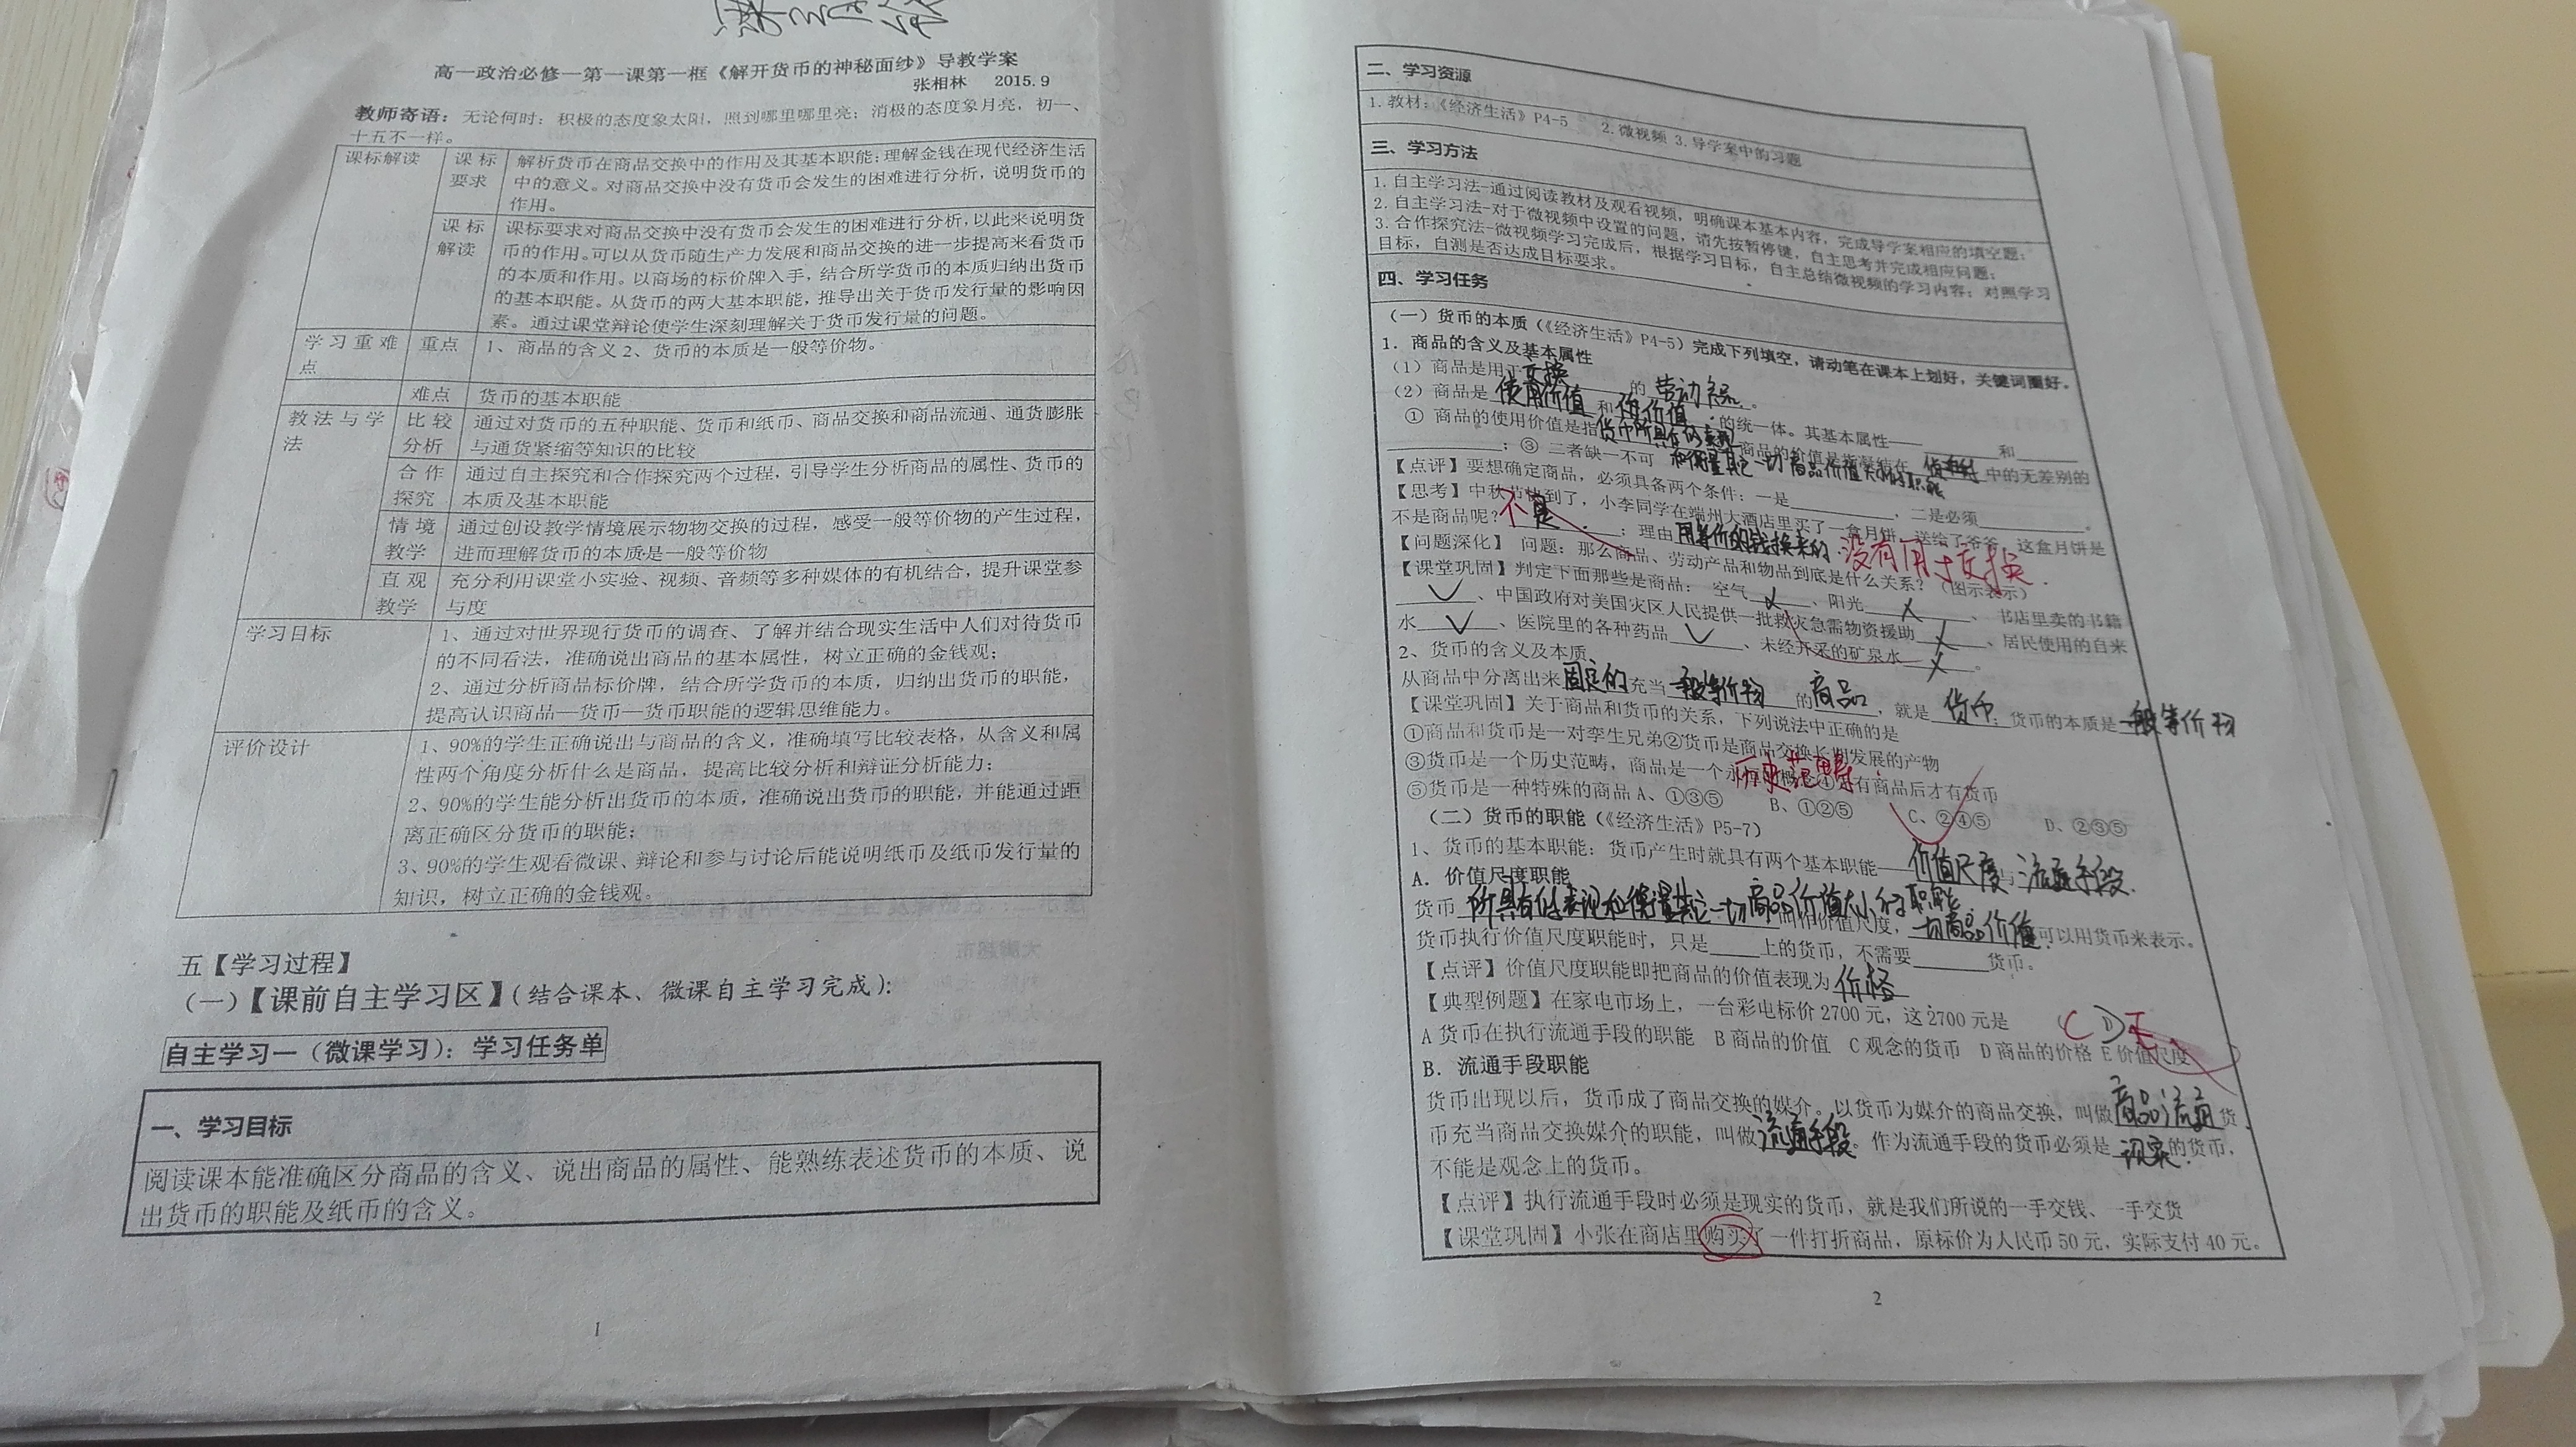 高一政治必修一第一课第一框《解开货币的神秘面纱》导教学案
张相林 2015.9
教师寄语：无论何时：积极的态度象太阳，照到哪里哪里亮；消极的态度象月亮，初一、
十五不一样。
课标解读
课标要求
解析货币在商品交换中的作用及其基本职能；理解金钱在现代经济生活
中的意义。对商品交换中没有货币会发生的困难进行分析，说明货币的
作用。
课标解读
课标要求对商品交换中没有货币会发生的困难进行分析，以此来说明货
币的作用。可以从货币随生产力发展和商品交换的进一步提高来看货币
的本质和作用。以商场的标价牌入手，结合所学货币的本质归纳出货币
的基本职能。从货币的两大基本职能，推导出关于货币发行量的影响因
素。通过课堂辩论使学生深刻理解关于货币发行量的问题。
学习重难点
重点
1、商品的含义2、货币的本质是一般等价物。
难点
货币的基本职能
教法与学法
比较分析
通过对货币的五种职能、货币和纸币、商品交换和商品流通、通货膨胀
与通货紧缩等知识的比较
合作探究
通过自主探究和合作探究两个过程，引导学生分析商品的属性、货币的
本质及基本职能
情境教学
通过创设教学情境展示物物交换的过程，感受一般等价物的产生过程，
进而理解货币的本质是一般等价物
直观教学
充分利用课堂小实验、视频、音频等多种媒体的有机结合，提升课堂参
与度
学习目标
1、通过对世界现行货币的调查、了解并结合现实生活中人们对待货币
的不同看法，准确说出商品的基本属性，树立正确的金钱观；
2、通过分析商品标价牌，结合所学货币的本质，归纳出货币的职能，
提高认识商品—货币—货币职能的逻辑思维能力。
评价设计
1、90%的学生正确说出与商品的含义，准确填写比较表格，从含义和属
性两个角度分析什么是商品，提高比较分析和辩证分析能力；
2、90%的学生能分析出货币的本质，准确说出货币的职能，并能通过距
离正确区分货币的职能；
3、90%的学生观看微课、辩论和参与讨论后能说明纸币及纸币发行量的
知识，树立正确的金钱观。
五【学习过程】
（一）【课前自主学习区】（结合课本、微课自主学习完成）：
自主学习一（微课学习）：学习任务单
一、学习目标
阅读课本能准确区分商品的含义、说出商品的属性、能熟练表述货币的本质、说
出货币的职能及纸币的含义。
1
二、学习资源
1.教材：《经济生活》P4-5 2.微视频 3.导学案中的习题
三、学习方法
1.自主学习法-通过阅读教材及观看视频，明确课本基本内容，完成导学案相应的填空题；
2.自主学习法-对于微视频中设置的问题，请先按暂停键，自主思考并完成相应问题；
3.合作探究法-微视频学习完成后，根据学习目标，自主总结微视频的学习内容；对照学习
目标，自测是否达成目标要求。
四、学习任务
（一）货币的本质（《经济生活》P4-5）完成下列填空，请动笔在课本上划好，关键词圈好。
1．商品的含义及基本属性
（1）商品是用于交换的劳动产品。
（2）商品是使用价值和价值的统一体。其基本属性——和
① 商品的使用价值是指货币所具有的表现 商品的价值是指凝结在 中的无差别的
；③ 二者缺一不可 和衡量其它一切商品价值大小的职能
【点评】要想确定商品，必须具备两个条件：一是 ，二是必须 。
【思考】中秋节快到了，小李同学在端州大酒店里买了一盒月饼，送给了爷爷，这盒月饼是
不是商品呢？不是；理由用等价的钱换来的.没有用于交换.
【问题深化】 问题：那么商品、劳动产品和物品到底是什么关系？（图示表示）
【课堂巩固】判定下面那些是商品： 空气 × 、阳光 × 、书店里卖的书籍
√ 、中国政府对美国灾区人民提供一批救火急需物资援助 × 、居民使用的自来
水 √ 、医院里的各种药品 √ 、未经开采的矿泉水 × 。
2、货币的含义及本质
从商品中分离出来固定的充当一般等价物的商品，就是货币；货币的本质是一般等价物
【课堂巩固】关于商品和货币的关系，下列说法中正确的是
①商品和货币是一对孪生兄弟②货币是商品交换长期发展的产物
③货币是一个历史范畴，商品是一个永恒的概念④先有商品后才有货币
历史范畴
⑤货币是一种特殊的商品 A、①③⑤ B、①②⑤ C、②④⑤ D、②③⑤
（二）货币的职能（《经济生活》P5-7）
1、货币的基本职能：货币产生时就具有两个基本职能——价值尺度与流通手段.
A．价值尺度职能
货币所具有的表现和衡量其它一切商品价值大小的职能 叫作价值尺度，一切商品价值可以用货币来表示。
货币执行价值尺度职能时，只是 上的货币，不需要 货币。
【点评】价值尺度职能即把商品的价值表现为价格
【典型例题】在家电市场上，一台彩电标价2700元，这2700元是 CDE
A 货币在执行流通手段的职能 B 商品的价值 C 观念的货币 D 商品的价格 E 价值尺度
B．流通手段职能
货币出现以后，货币成了商品交换的媒介。以货币为媒介的商品交换，叫做商品流通货
币充当商品交换媒介的职能，叫做流通手段。作为流通手段的货币必须是现实的货币，
不能是观念上的货币。
【点评】执行流通手段时必须是现实的货币，就是我们所说的一手交钱、一手交货
【课堂巩固】小张在商店里购买了一件打折商品，原标价为人民币50元，实际支付40元。
2